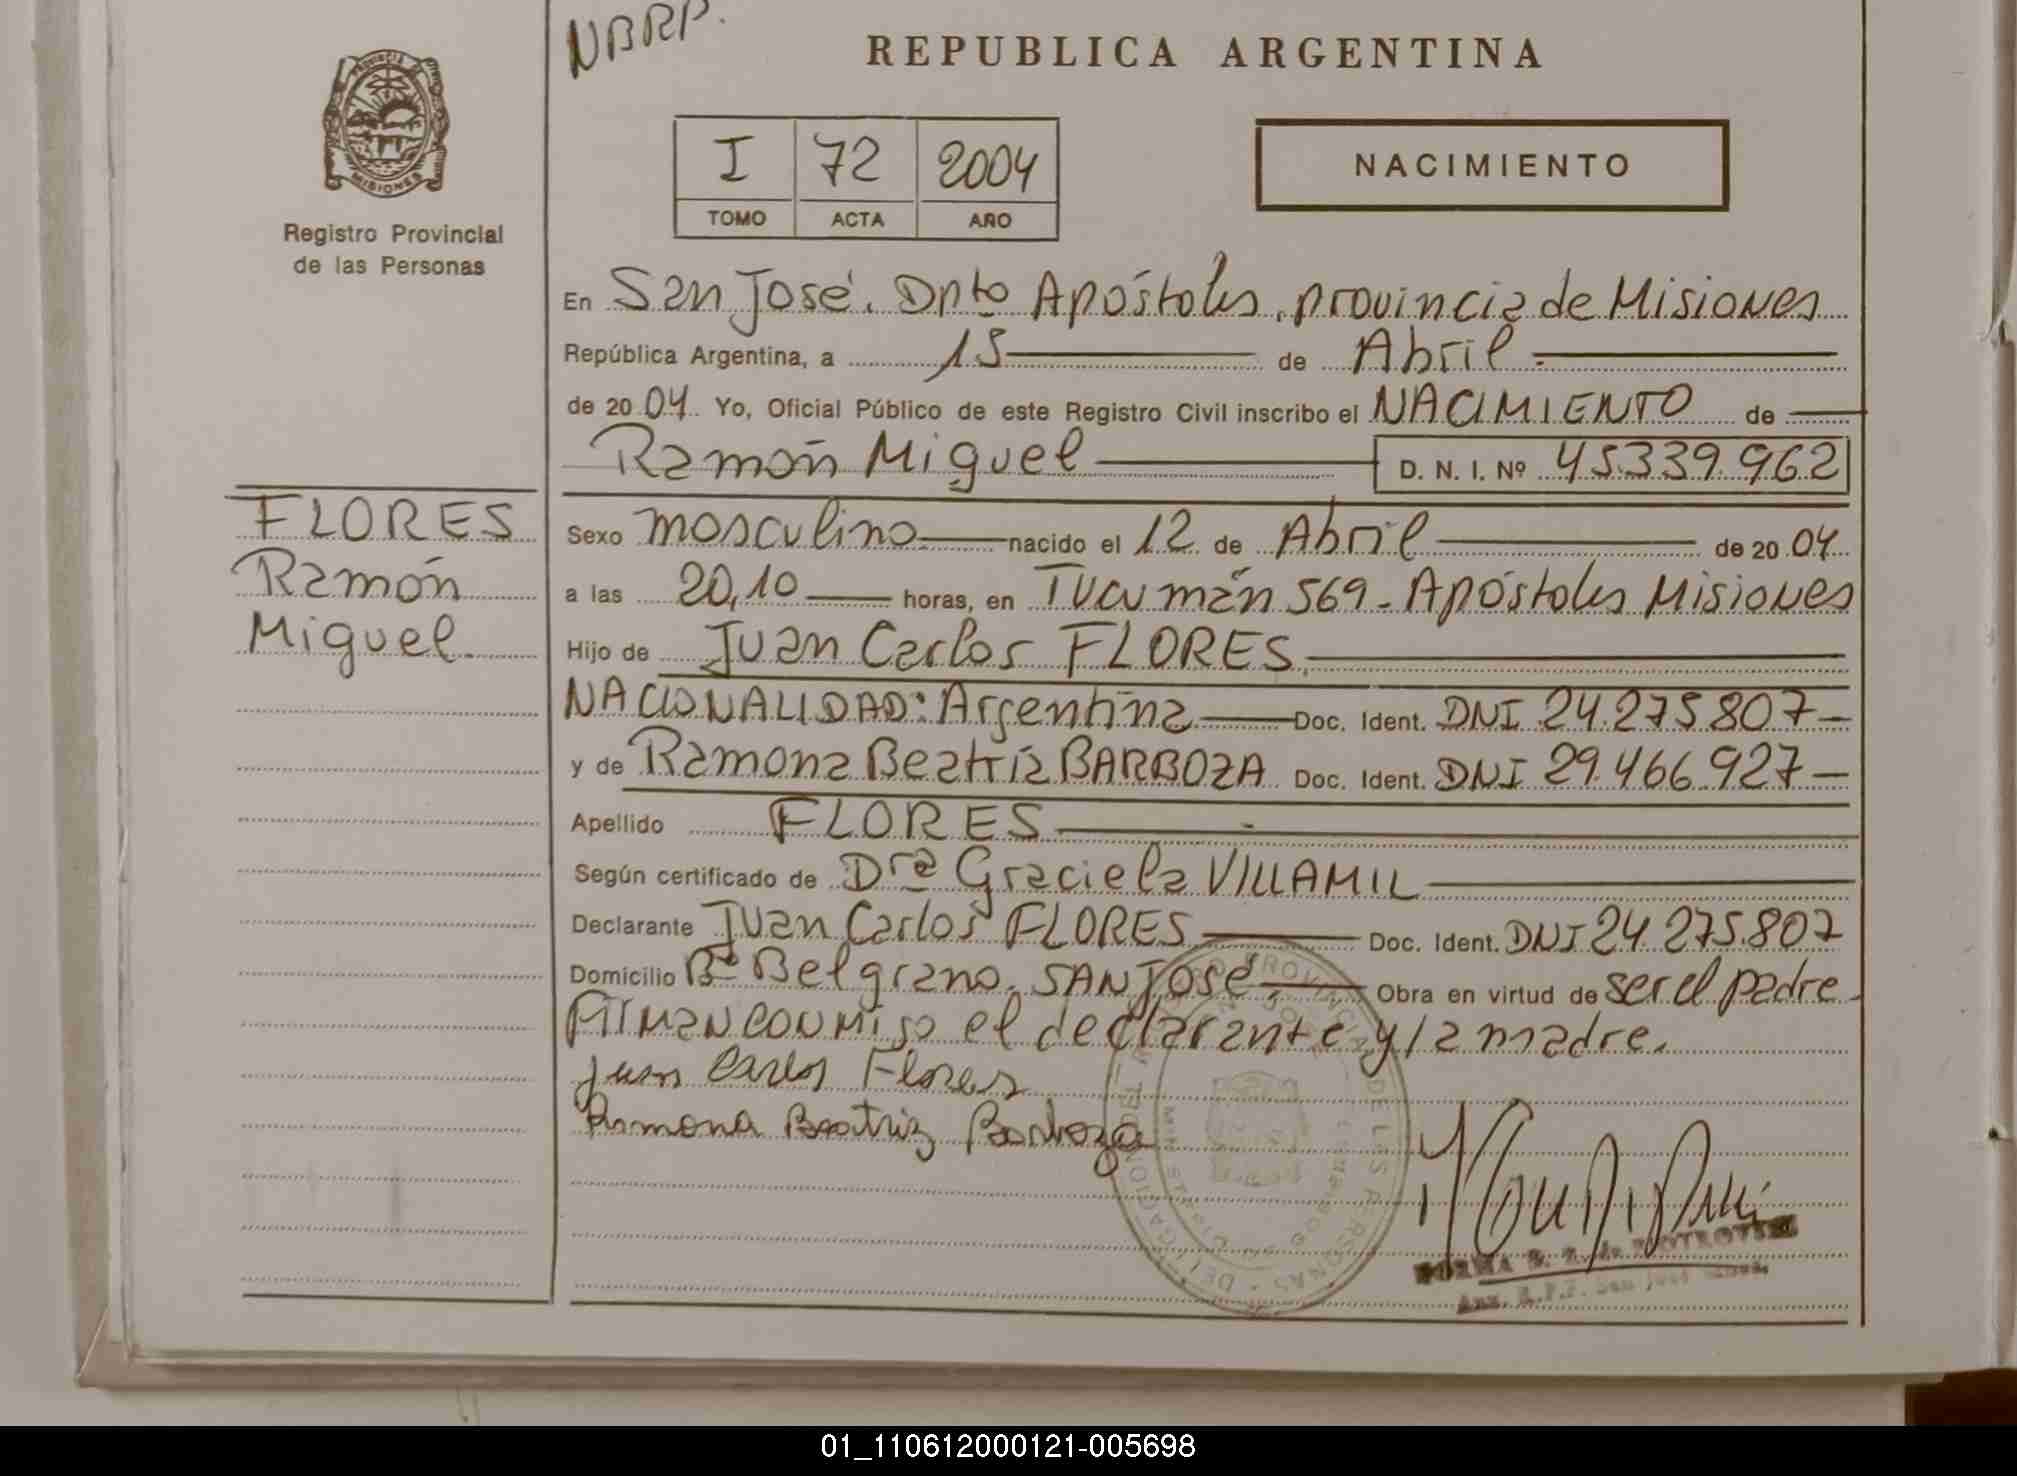 NBRP.
REPUBLICA ARGENTINA
PROVINCIA DE MISIONES
Registro Provincial
de las Personas
I 72 2004
TOMO ACTA AÑO
NACIMIENTO
En San José. Dpto Apóstoles, provincia de Misiones
República Argentina, a 15 de Abril.
de 2004 Yo, Oficial Público de este Registro Civil inscribo el NACIMIENTO de
Ramón Miguel D. N. I. Nº 45.339.962
FLORES
Ramón
Miguel.
Sexo masculino nacido el 12 de Abril de 2004
a las 20,10 horas, en Tucumán 569 - Apóstoles Misiones
Hijo de Juan Carlos FLORES.
NACIONALIDAD: Argentina Doc. Ident. DNI 24.275.807-
y de Ramona Beatríz BARBOZA Doc. Ident. DNI 29.466.927-
Apellido FLORES
Según certificado de Dra Graciela VILLAMIL
Declarante Juan Carlos FLORES Doc. Ident. DNI 24.275.807
Domicilio Bº Belgrano. SAN José. Obra en virtud de ser el padre.
Firman conmigo el declarante y la madre.
Juan Carlos Flores
Ramona Beatriz Barboza
PROVINCIAL DE LAS PERSONAS - DELEGACION
NORMA de PIOTROVSKI
R.P.P. San José
01_110612000121-005698